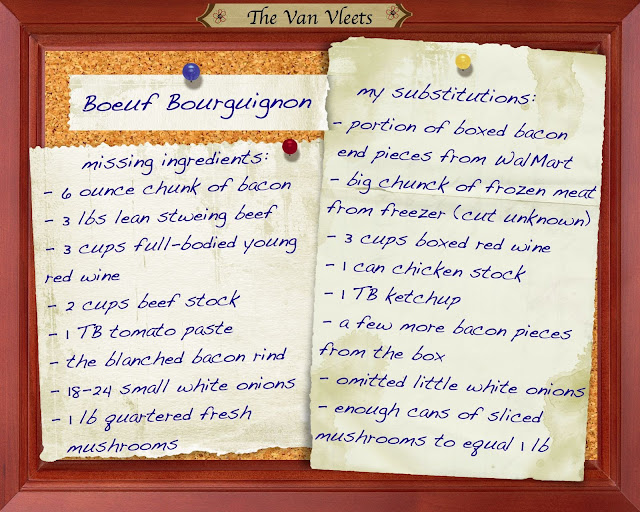 The Van Vleets
Boeuf Bourguignon
missing ingredients:
- 6 ounce chunk of bacon
- 3 lbs lean stweing beef
- 3 cups full-bodied young
red wine
- 2 cups beef stock
- 1 TB tomato paste
- the blanched bacon rind
- 18-24 small white onions
- 1 lb quartered fresh
mushrooms
my substitutions:
- portion of boxed bacon
end pieces from WalMart
- big chunck of frozen meat
from freezer (cut unknown)
- 3 cups boxed red wine
- 1 can chicken stock
- 1 TB ketchup
- a few more bacon pieces
from the box
- omitted little white onions
- enough cans of sliced
mushrooms to equal 1 lb